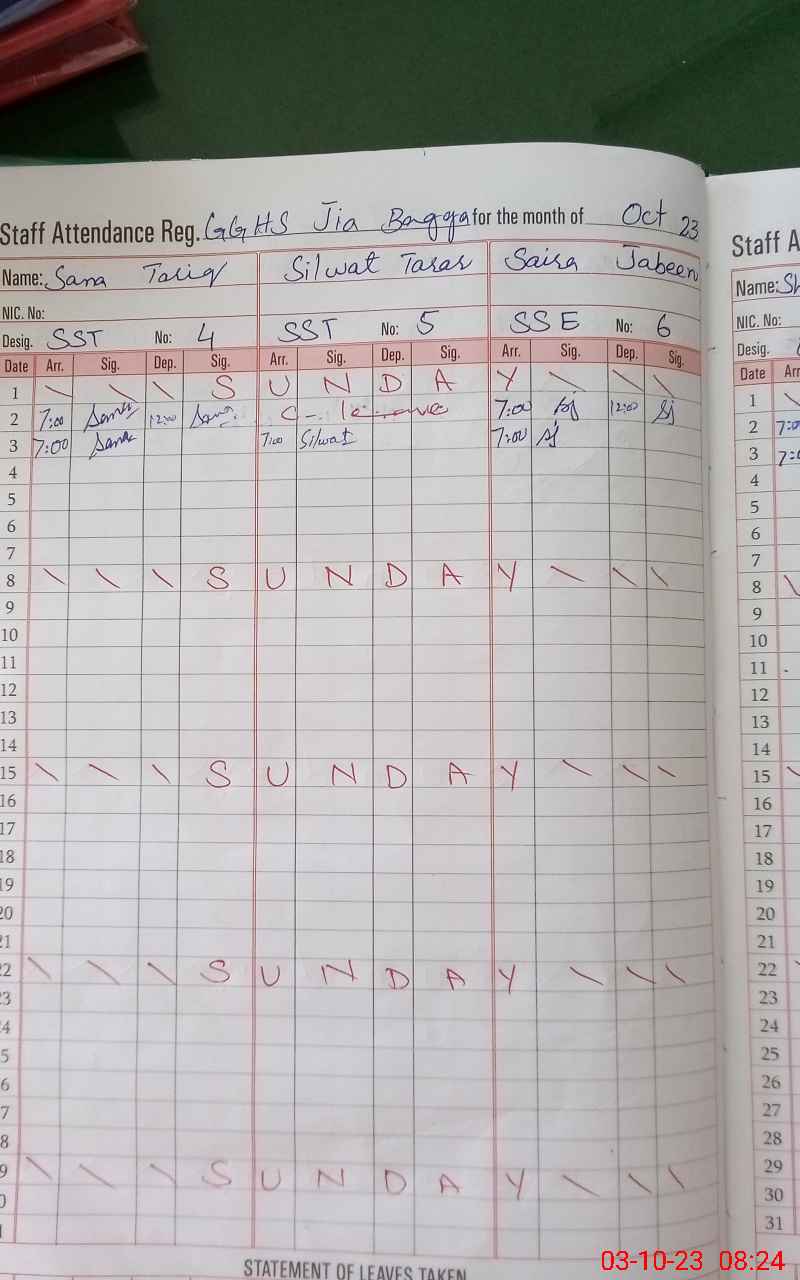 Staff Attendance Reg. GGHS Jia Bagga for the month of Oct 23
Name: Sana Tariq Silwat Tarar Saira Jabeen
NIC. No:
Desig. SST No: 4 SST No: 5 SSE No: 6
Date Arr. Sig. Dep. Sig. Arr. Sig. Dep. Sig. Arr. Sig. Dep. Sig.
1 \ \ \ S U N D A Y \ \ \
2 7:00 12:00 C - leave 7:00 Sj 12:00 Sj
3 7:00 7:00 Silwat 7:00 Sj
4
5
6
7
8 \ \ \ S U N D A Y \ \ \
9
10
11
12
13
14
15 \ \ \ S U N D A Y \ \ \
16
17
18
19
20
21
22 \ \ \ S U N D A Y \ \ \
23
4
5
6
7
8
9 \ \ \ S U N D A Y \ \ \
0
1
STATEMENT OF LEAVES TAKEN
Staff A
Name: Sh
NIC. No:
Desig.
Date Arr
1 \
2 7:0
3 7:0
4
5
6
7
8 \
9
10
11
12
13
14
15 \
16
17
18
19
20
21
22
23
24
25
26
27
28
29
30
31
03-10-23 08:24